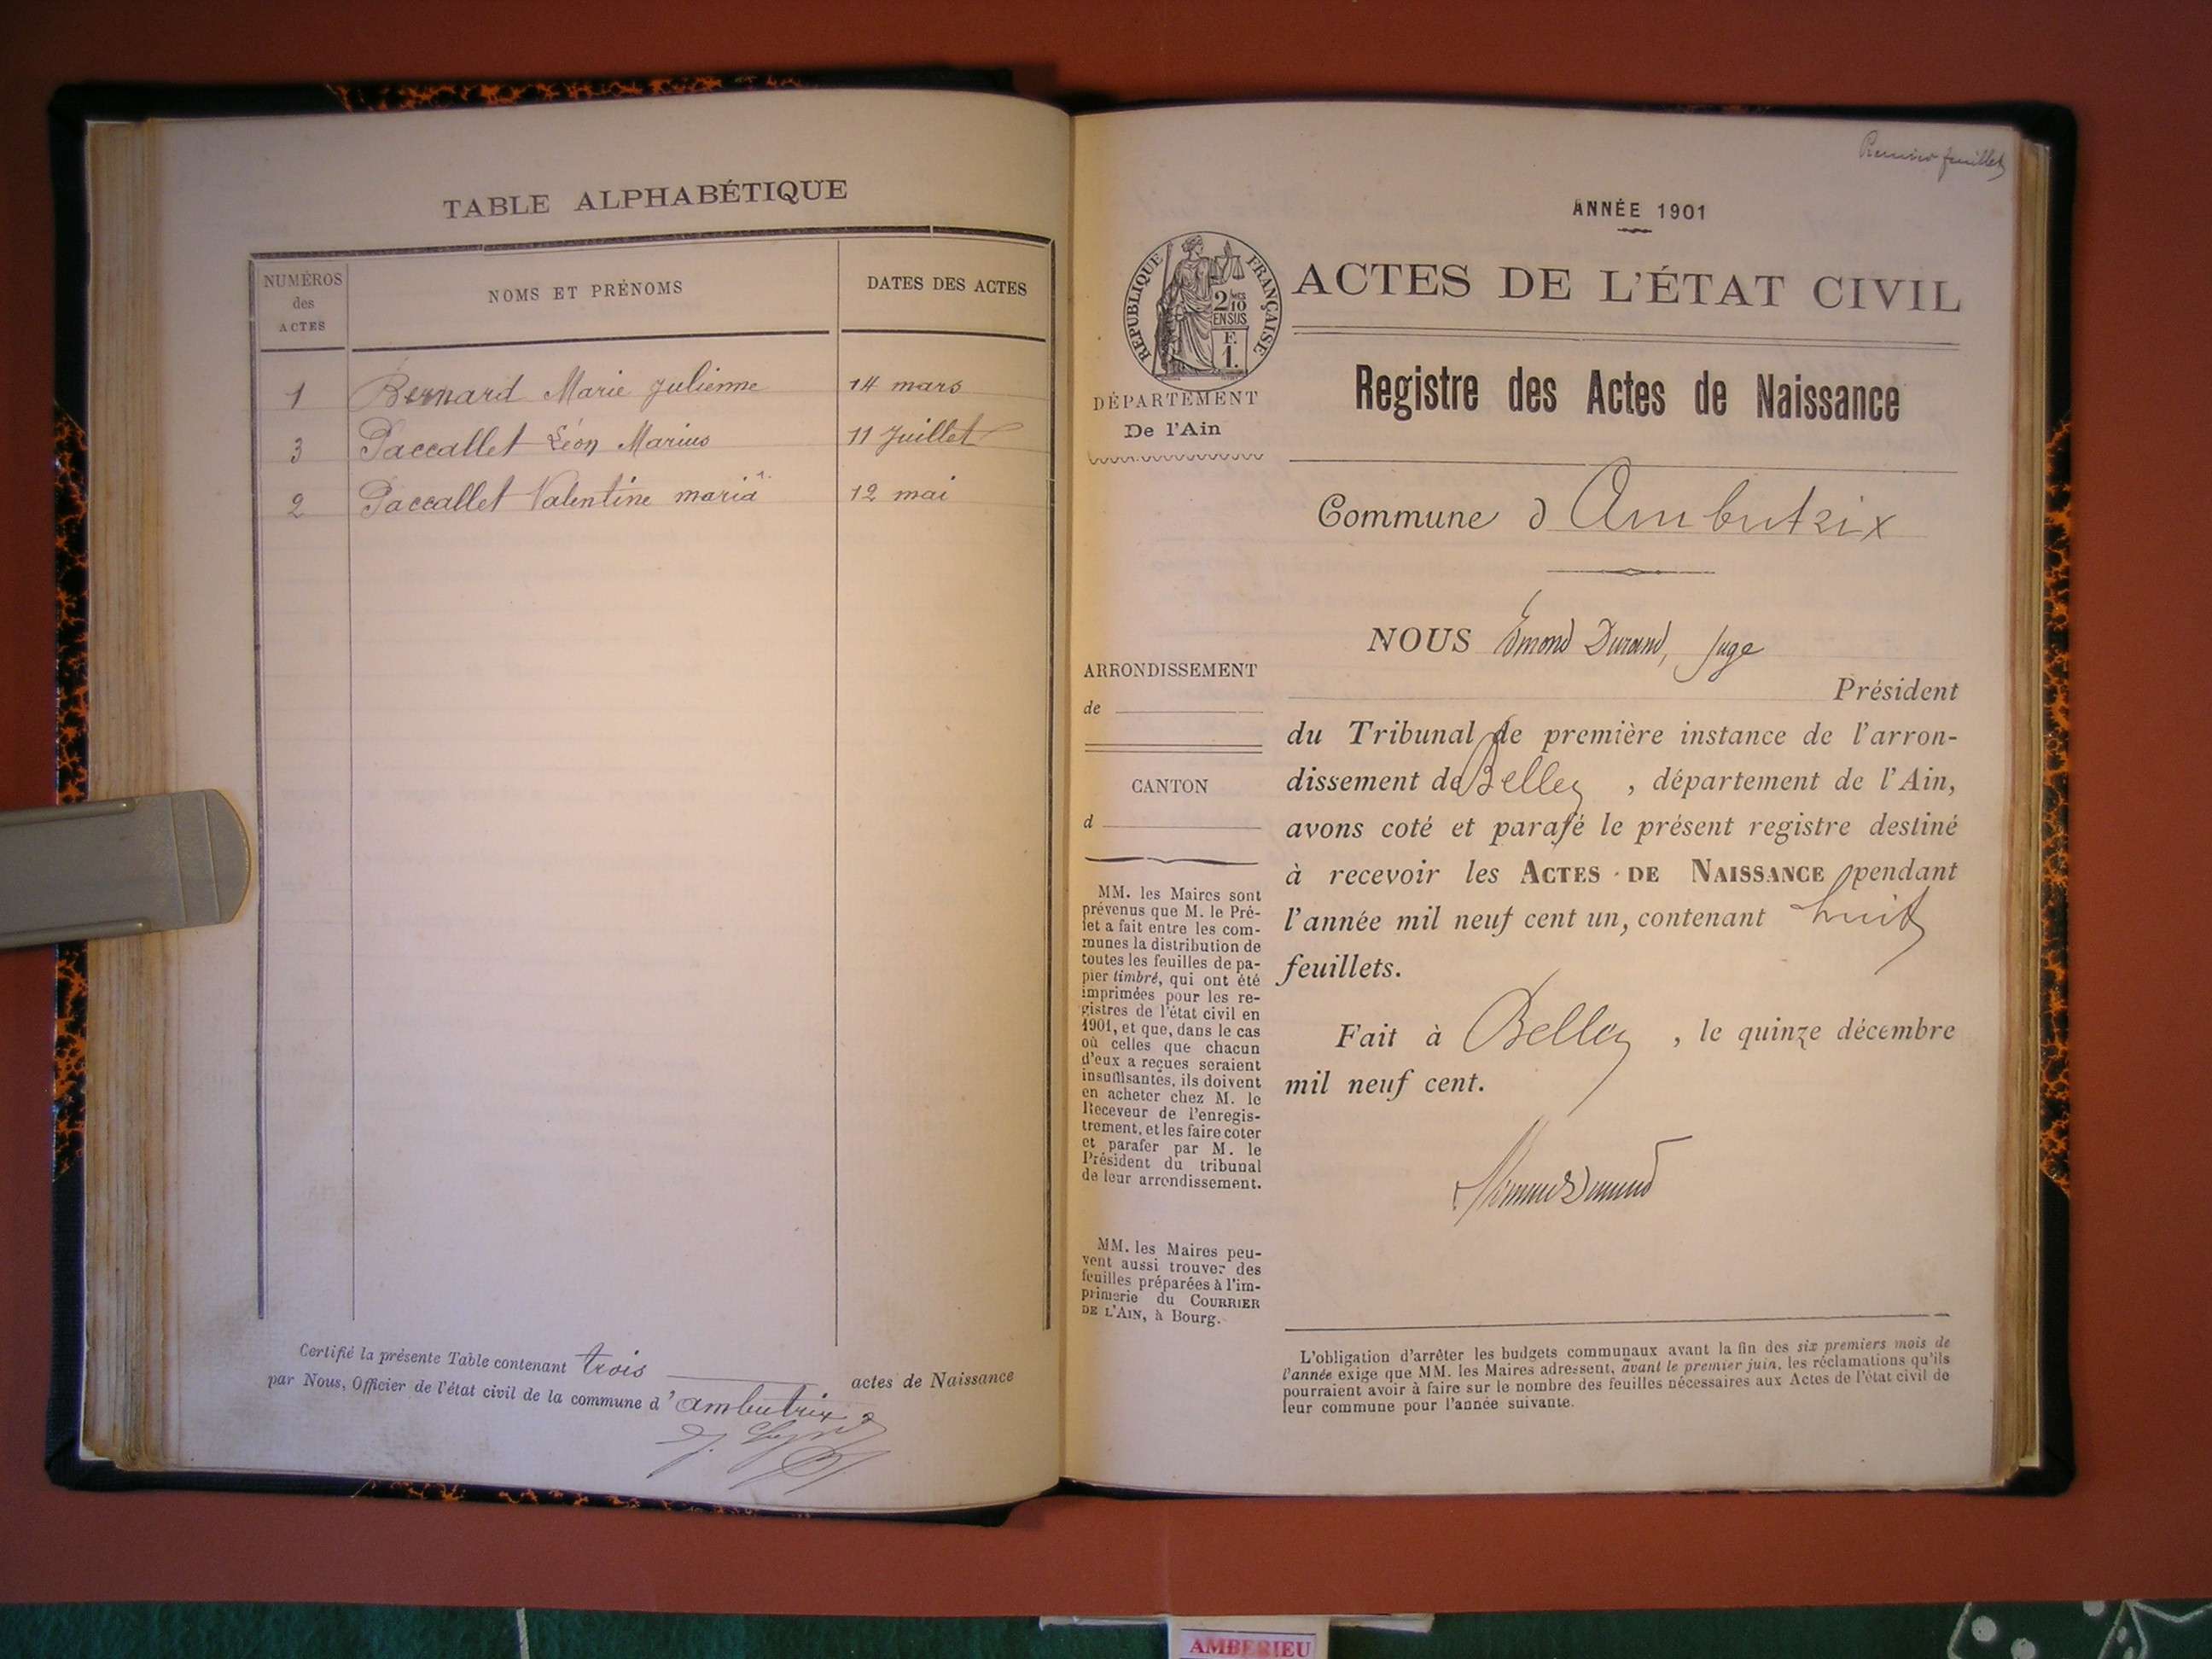 TABLE ALPHABÉTIQUE
NUMÉROS
des
ACTES
NOMS ET PRÉNOMS
DATES DES ACTES
1 Bernard Marie Julienne 14 mars
3 Paccallet Léon Marius 11 Juillet
2 Paccallet Valentine maria 12 mai
Certifié la présente Table contenant trois actes de Naissance
par Nous, Officier de l'état civil de la commune d'ambutrix
Premier feuillet
ANNÉE 1901
RÉPUBLIQUE FRANÇAISE
2/10
EN SUS
F.
1.
ACTES DE L'ÉTAT CIVIL
DÉPARTEMENT
De l'Ain
Registre des Actes de Naissance
Commune d Ambutrix
ARRONDISSEMENT
de
CANTON
d
MM. les Maires sont
prévenus que M. le Pré-
fet a fait entre les com-
munes la distribution de
toutes les feuilles de pa-
pier timbré, qui ont été
imprimées pour les re-
gistres de l'état civil en
1901, et que, dans le cas
où celles que chacun
d'eux a reçues seraient
insuffisantes, ils doivent
en acheter chez M. le
Receveur de l'enregis-
trement, et les faire coter
et parafer par M. le
Président du tribunal
de leur arrondissement.
MM. les Maires peu-
vent aussi trouver des
feuilles préparées à l'im-
primerie du COURRIER
DE L'AIN, à Bourg.
NOUS Edmond Durand, Juge
Président
du Tribunal de première instance de l'arron-
dissement de Belley, département de l'Ain,
avons coté et parafé le présent registre destiné
à recevoir les ACTES DE NAISSANCE pendant
l'année mil neuf cent un, contenant huit
feuillets.
Fait à Belley, le quinze décembre
mil neuf cent.
L'obligation d'arrêter les budgets communaux avant la fin des six premiers mois de
l'année exige que MM. les Maires adressent, avant le premier juin, les réclamations qu'ils
pourraient avoir à faire sur le nombre des feuilles nécessaires aux Actes de l'état civil de
leur commune pour l'année suivante.
AMBERIEU